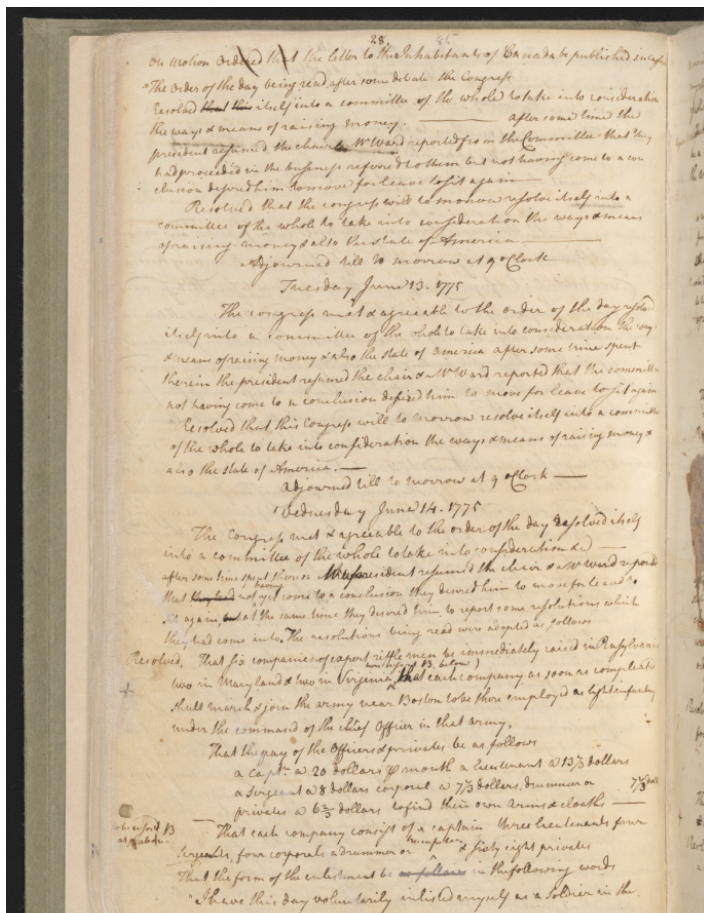 28. 45
On motion Ordered that the letter to the Inhabitants of Canada be published
The order of the day being read, after some debate the Congress
Resolved that this itself into a committee of the whole to take into consideration
the ways & means of raising money. ——— after some time the
president resumed the chair & Mr Ward reported from the Committee that they
had proceeded in the business refered to them but not having come to a con
clusion desired him to move for leave to sit again
Resolved that the congress will to morrow resolve itself into a
committee of the whole to take into consideration the ways & means
of raising money & also the state of America
Adjourned till to morrow at 9 oClock
Tuesday June 13. 1775
The congress met & agreeable to the order of the day resolvd
itself into a committee of the whole to take into consideration the ways
& means of raising money & also the state of america after some time spent
therein the president resumed the chair & Mr Ward reported that the committee
not having come to a conclusion desired him to move for leave to sit again
Resolved that this Congress will to morrow resolve itself into a committee
of the whole to take into consideration the ways & means of raising money &
also the state of America. —
adjourned till to morrow at 9 oClock —
Wednesday June 14. 1775
The Congress met & agreeable to the order of the day resolved itself
into a committee of the whole to take into consideration &c —
after some time spent therein the president resumed the chair & Mr Ward reported
that they had not yet having come to a conclusion they desired him to move for leave to
sit again, but at the same time they desired him to report some resolutions which
they had come into. The resolutions being read were adopted as follows
Resolved, That six companies of expert rifle men be immediately raised in Pensylvania
two in Maryland & two in Virginia, (consisting as B. below) that each company as soon as compleated
shall march & join the army near Boston to be there employed as light infantry
under the command of the chief Officer in that army.
That the pay of the Officers & privates be as follows
a Capt. @ 20 dollars ⅌ month a lieutenant @ 13⅓ dollars
a sergeant @ 8 dollars corporal @ 7⅓ dollars, drummer or 7⅓ doll
privates @ 6⅔ dollars to find their own arms & cloaths —
B
That each company consist of a captain three lieutenants four
sergeants, four corporals a drummer or trumpeter & sixty eight privates
That the form of the enlistment be as follows in the following words
"I have this day voluntarily inlisted myself as a soldier in the